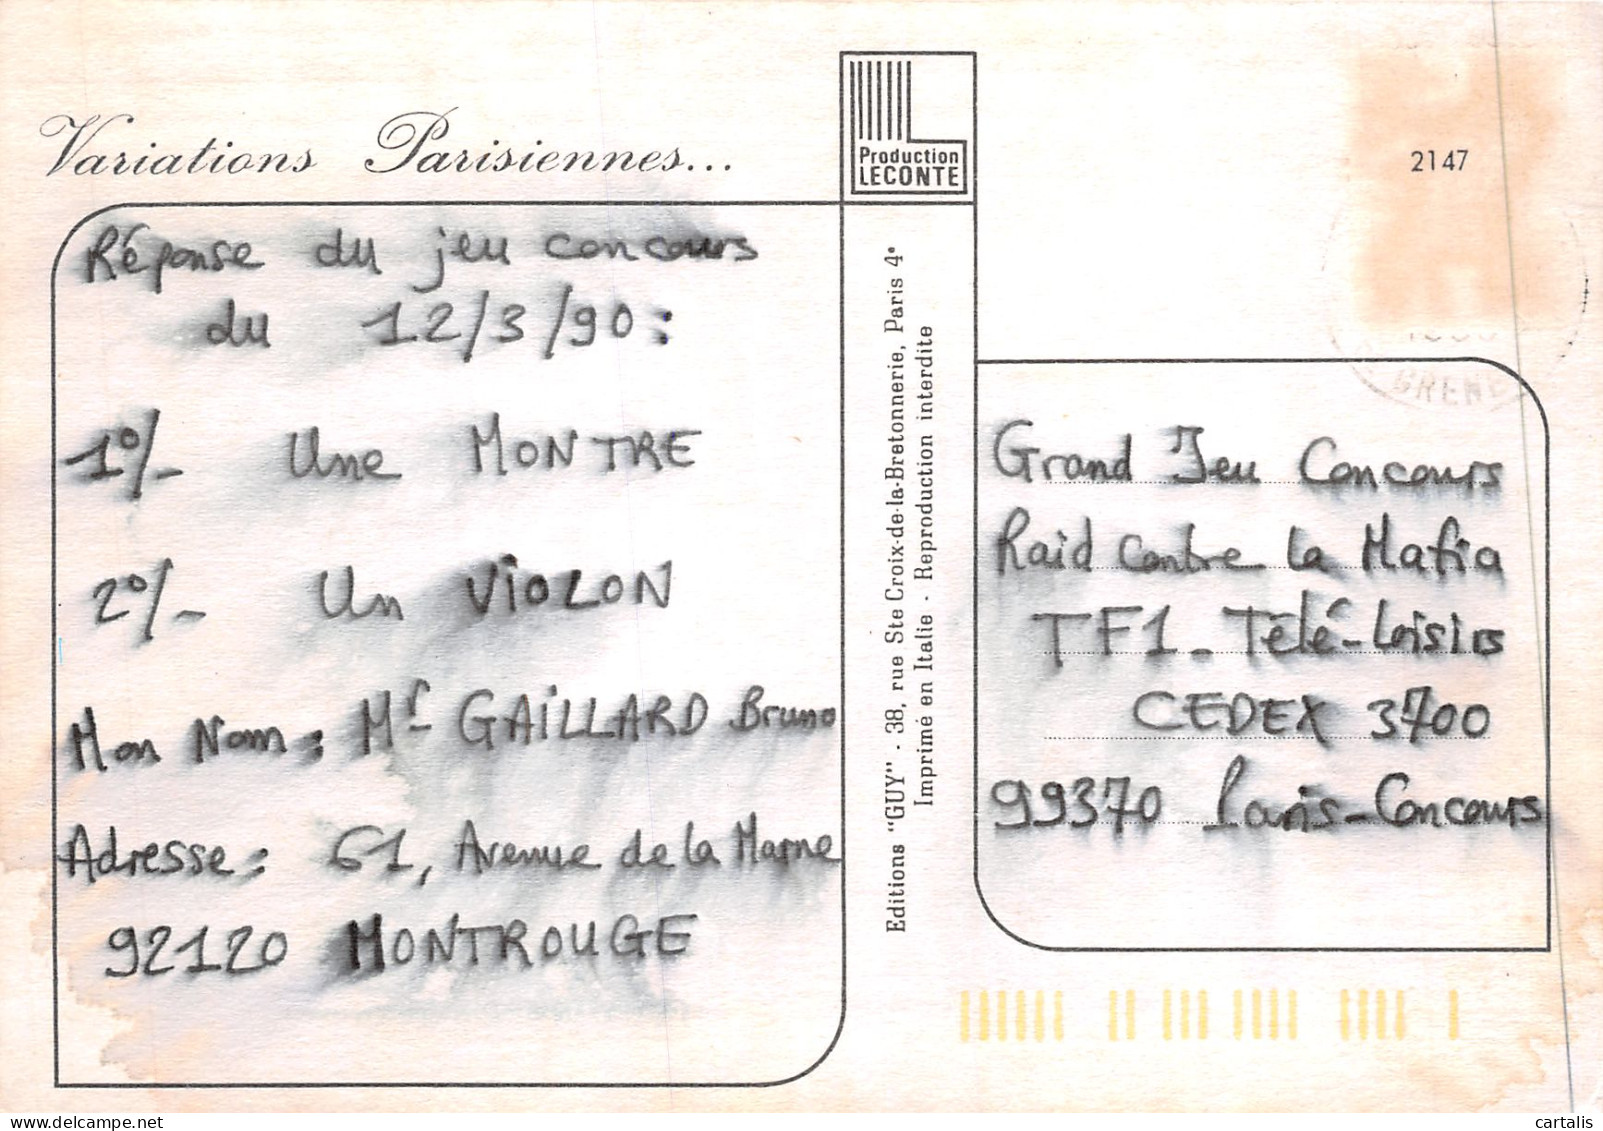 Variations Parisiennes...
Production
LECONTE
2147
Réponse du jeu concours
du 12/3/90 :
1°/- Une MONTRE
2°/- Un ViOLON
Mon Nom : Mr GAiLLARD Bruno
Adresse : 61, Avenue de la Marne
92120 MONTROUGE
Editions "GUY" - 38, rue Ste Croix-de-la-Bretonnerie, Paris 4e
Imprimé en Italie - Reproduction interdite
Grand Jeu Concours
Raid contre la Mafia
TF1 - Télé-Loisirs
CEDEX 3700
99370 Paris-Concours
cartalis